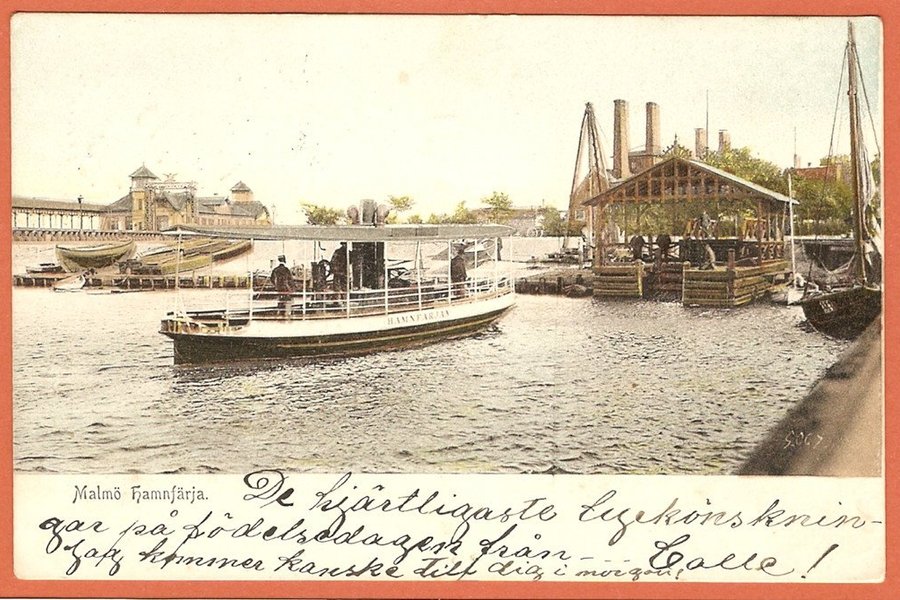 HAMNFÄRJAN
Malmö Hamnfärja.
De hjärtligaste lyckönsknin-
gar på födelsedagen från
Calle!
Jag kommer kanske till dig i morgon.